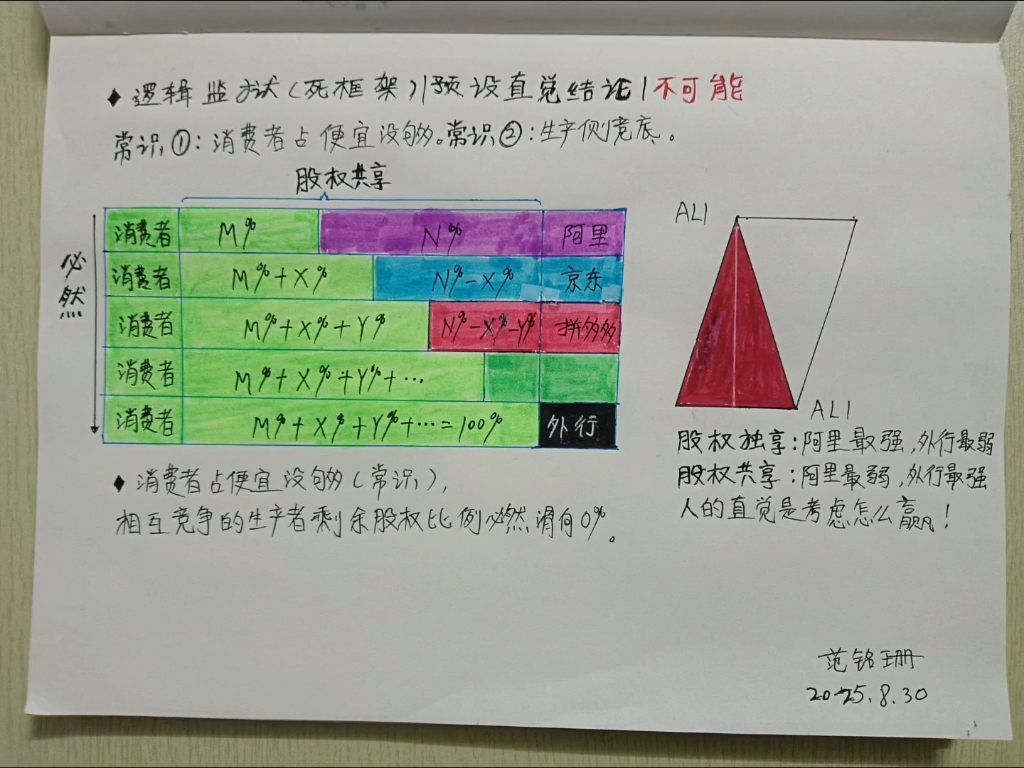 ♦ 逻辑监狱(死框架)|预设直觉结论|不可能
常识①:消费者占便宜没够。常识②:生产侧竞底。
股权共享
必然
消费者 M% N% 阿里
消费者 M%+X% N%-X% 京东
消费者 M%+X%+Y% N%-X%-Y% 拼多多
消费者 M%+X%+Y%+…
消费者 M%+X%+Y%+…=100% 外行
♦ 消费者占便宜没够(常识),
相互竞争的生产者剩余股权比例必然滑向0%。
ALI
ALI
股权独享:阿里最强,外行最弱
股权共享:阿里最弱,外行最强
人的直觉是考虑怎么赢!
范铭珊
2025.8.30